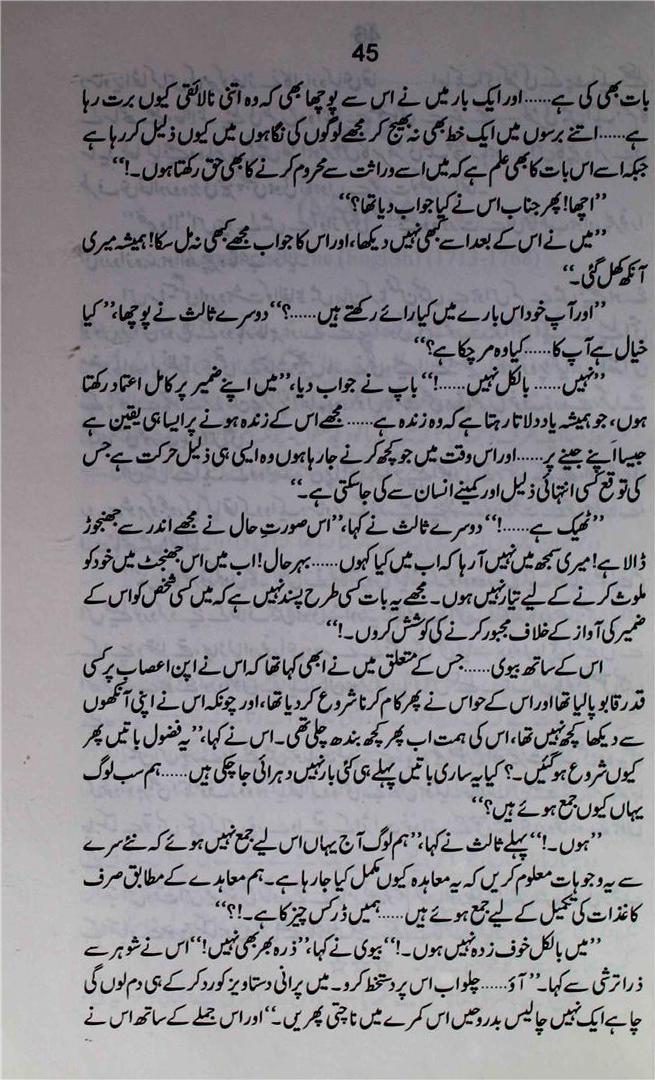 45
بات بھی کی ہے...... اور ایک بار میں نے اس سے پوچھا بھی کہ وہ اتنی نالائقی کیوں برت رہا
ہے...... اتنے برسوں میں ایک خط بھی نہ بھیج کر مجھے لوگوں کی نگاہوں میں کیوں ذلیل کر رہا ہے
جبکہ اسے اس بات کا بھی علم ہے کہ میں اسے وراثت سے محروم کرنے کا بھی حق رکھتا ہوں۔!‘‘
’’اچھا! پھر جناب اس نے کیا جواب دیا تھا؟‘‘
’’میں نے اس کے بعد اسے کبھی نہیں دیکھا، اور اس کا جواب مجھے کبھی نہ مل سکا! ہمیشہ میری
آنکھ کھل گئی۔‘‘
’’اور آپ خود اس بارے میں کیا رائے رکھتے ہیں......؟‘‘ دوسرے ثالث نے پوچھا، ’’کیا
خیال ہے آپ کا...... کیا وہ مر چکا ہے؟‘‘
’’نہیں...... بالکل نہیں......!‘‘ باپ نے جواب دیا، ’’میں اپنے ضمیر پر کامل اعتماد رکھتا
ہوں، جو ہمیشہ یاد دلاتا رہتا ہے کہ وہ زندہ ہے...... مجھے اس کے زندہ ہونے پر ایسا ہی یقین ہے
جیسا اپنے جینے پر...... اور اس وقت میں جو کچھ کرنے جا رہا ہوں وہ ایسی ہی ذلیل حرکت ہے جس
کی توقع کسی انتہائی ذلیل اور کمینے انسان سے کی جا سکتی ہے۔‘‘
’’ٹھیک ہے......!‘‘ دوسرے ثالث نے کہا، ’’اس صورتِ حال نے مجھے اندر سے جھنجوڑ
ڈالا ہے! میری سمجھ میں نہیں آ رہا کہ اب میں کیا کہوں...... بہر حال! اب میں اس جھنجٹ میں خود کو
ملوث کرنے کے لیے تیار نہیں ہوں۔ مجھے یہ بات کسی طرح پسند نہیں ہے کہ میں کسی شخص کو اس کے
ضمیر کی آواز کے خلاف مجبور کرنے کی کوشش کروں۔!‘‘
اس کے ساتھ بیوی...... جس کے متعلق میں نے ابھی کہا تھا کہ اس نے اپن اعصاب پر کسی
قدر قابو پا لیا تھا اور اس کے حواس نے پھر کام کرنا شروع کر دیا تھا، اور چونکہ اس نے اپنی آنکھوں
سے دیکھا کچھ نہیں تھا، اس کی ہمت اب پھر کچھ بندھ چلی تھی۔ اس نے کہا، ’’یہ فضول باتیں پھر
کیوں شروع ہو گئیں۔؟ کیا یہ ساری باتیں پہلے ہی کئی بار نہیں دہرائی جا چکی ہیں...... ہم سب لوگ
یہاں کیوں جمع ہوئے ہیں؟‘‘
’’ہوں۔!‘‘ پہلے ثالث نے کہا، ’’ہم لوگ آج یہاں اس لیے جمع نہیں ہوئے کہ نئے سرے
سے یہ وجوہات معلوم کریں کہ یہ معاہدہ کیوں مکمل کیا جا رہا ہے۔ ہم معاہدے کے مطابق صرف
کاغذات کی تکمیل کے لیے جمع ہوئے ہیں...... ہمیں ڈر کس چیز کا ہے۔!؟‘‘
’’میں بالکل خوف زدہ نہیں ہوں۔!‘‘ بیوی نے کہا، ’’ذرہ بھر بھی نہیں!‘‘ اس نے شوہر سے
ذرا ترشی سے کہا۔ ’’آؤ...... چلو اب اس پر دستخط کرو۔ میں پرانی دستاویز کو رد کر کے ہی دم لوں گی
چاہے ایک نہیں چالیس بدروحیں اس کمرے میں ناچتی پھریں۔‘‘ اور اس جملے کے ساتھ اس نے